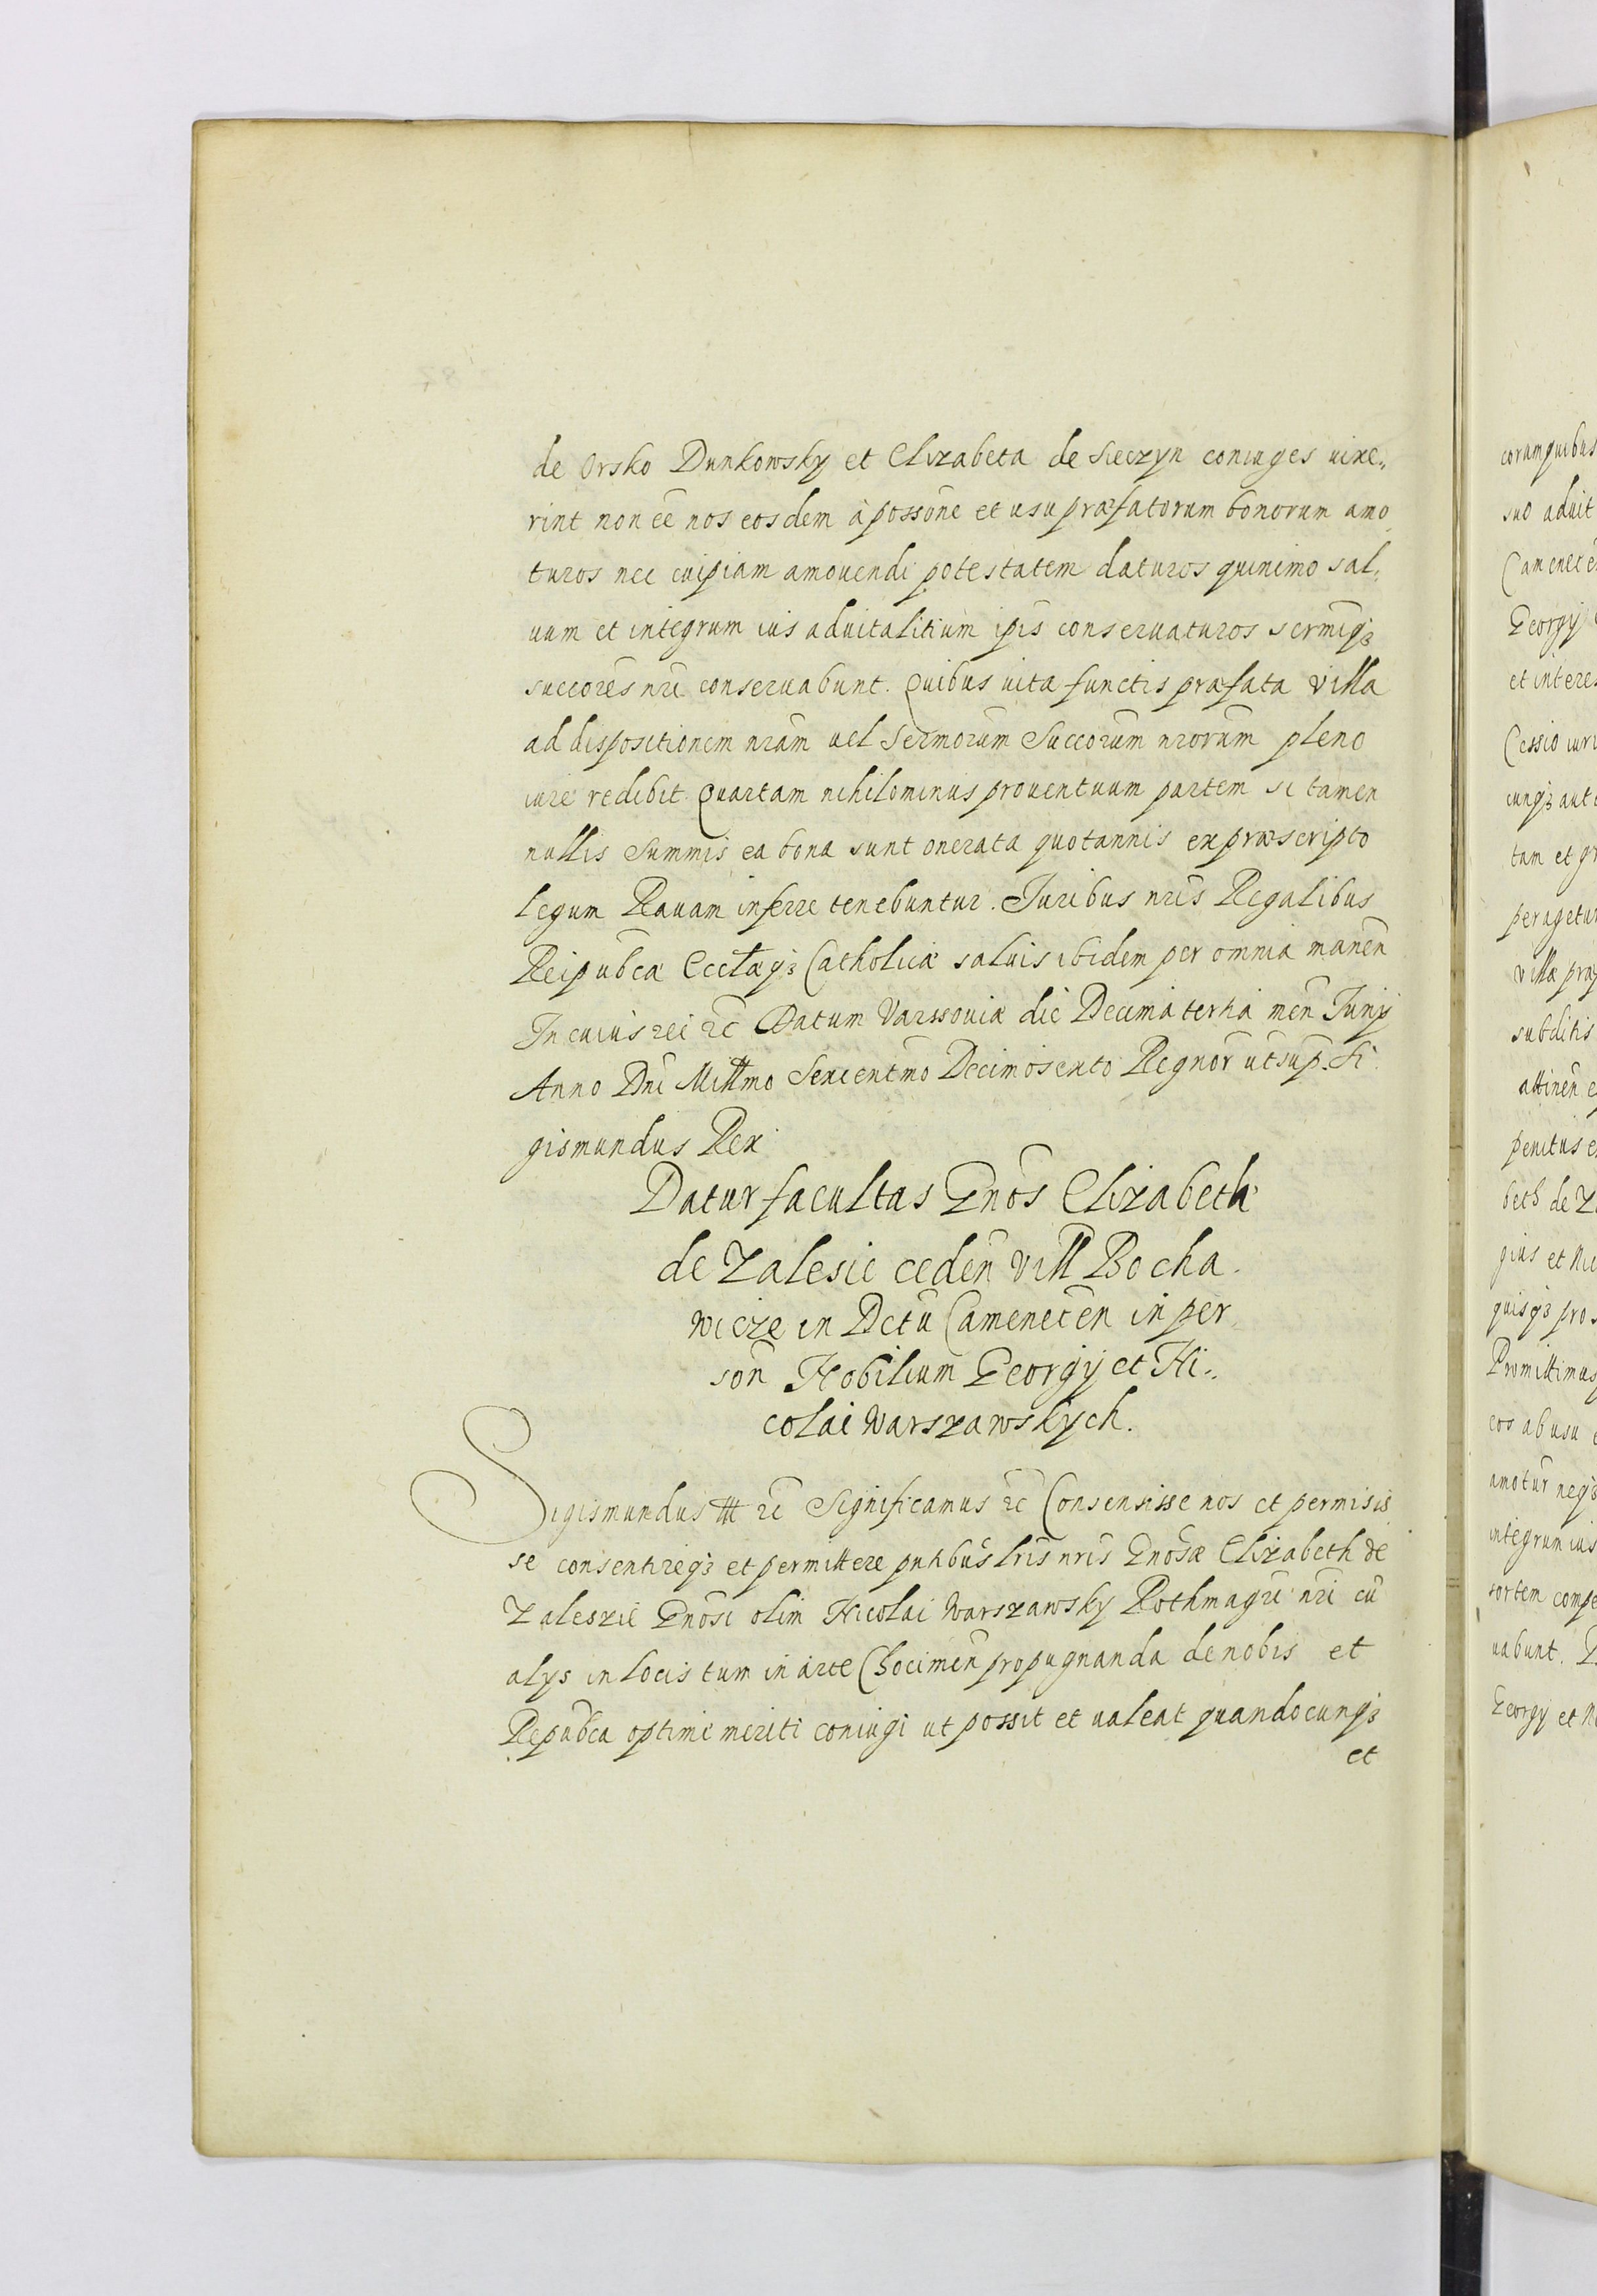 de Orsko Dunkowsky et Elizabeta de Sieczyn coniuges uixe„
rint non eē nos eosdem à possōne et usu præfatorum bonorum amo„
turos nec cuipiam amouendi potestatem daturos quinimo sal„
uum et integrum ius aduitalitium ipīs conseruaturos sermīq3
succorēs nrī conseruabunt. Quibus uita functis præfata villa
ad dispositionem nrām uel Sermorūm Succorūm nrorūm pleno
iure redibit. Quartam nihilominus prouentuum partem si tamen
nullis Summis ea bona sunt onerata quotannis ex præscripto
legum Rauam inferre tenebuntur. Juribus nrīs Regalibus
Reipubcæ Ecclæq3 Catholicæ saluis ibidem per omnia manēn
In cuius rei rc̄ Datum Varssouiæ die Decima tertia mēn Junij
Anno Dnī Millmo Sexcentm̄o Decimosexto Regnōr ut sup. Si
gismundus Rex
Datur facultas Gnōs Elizabetha
de Zalesie cedēn vill Bocha
wicze in Dctū Camenecēn in per
sōn Nobilium Georgij et Ni„
colai Warszawskych.
Sigismundus III rc̄ Significamus rc̄ Consensisse nos et permisis
se consentireq3 et permittere pntibūs lrīs nrīs Gnōsæ Elizabeth de
Zaleszie Gnōsi olim Nicolai Warszawsky Rothmagrī nrī cū
alijs in locis tum in arce Chocimēn propugnanda de nobis et
Repubca optime meriti coniugi ut possit et ualeat quandocunq3
et
corumquibus
suo aduit
Georgij
Cessio iuri
cunq3 aut
tam et gr
peragetur
villæ præ
subditis
attinēn e
penitus e
beth de Z
gius et Nic
quisq3 pro
Promittimus
eos ab usu
neq3
integrum ius
sortem compe
uabunt.
Georgij et N